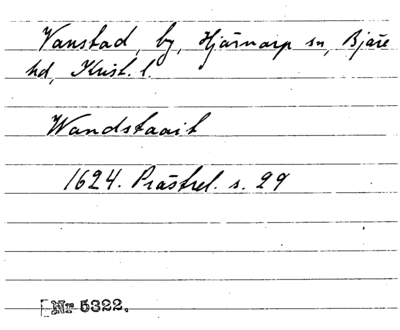 Vanstad, by, Hjärnarp sn, Bjäre
hd, Krist. l.
Wandstaait
1624. Prästrel. s. 29
Nr 5322.